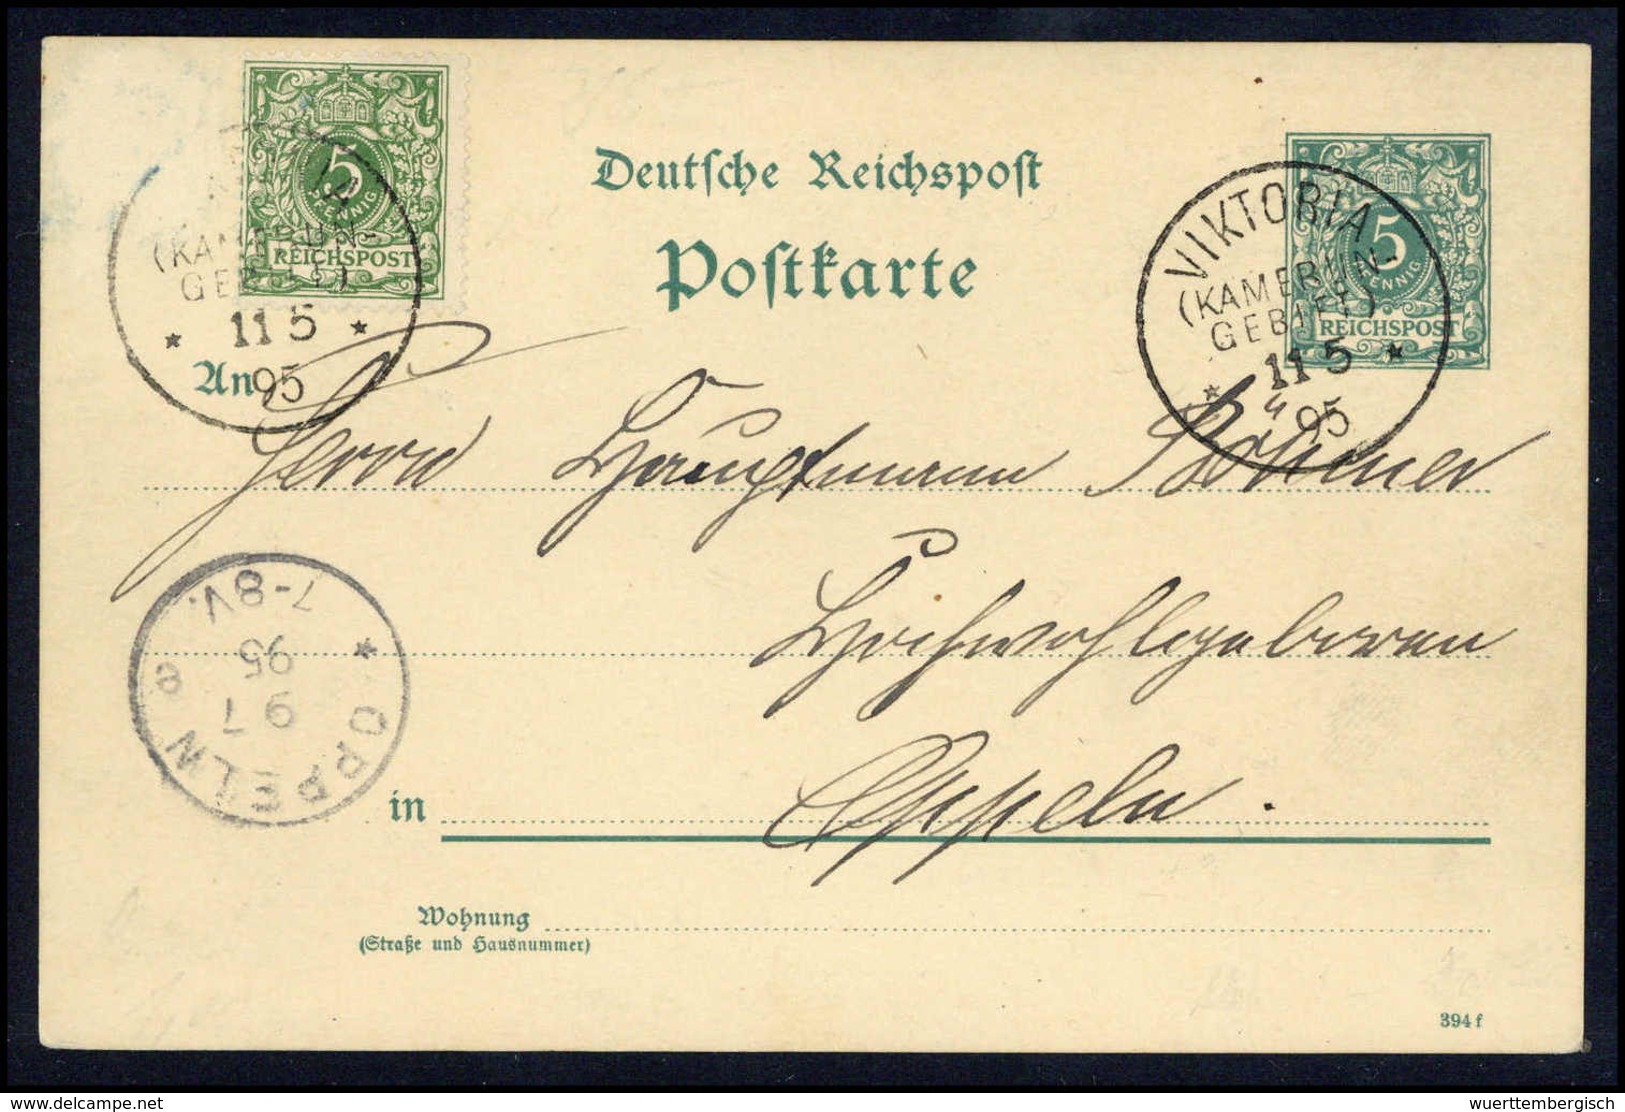 5
PFENNIG
REICHSPOST
(KAMERUN-
GEBIET)
* 11 5 *
95
Deutsche Reichspost
Postkarte
5
PFENNIG
REICHSPOST
VIKTORIA
(KAMERUN-
GEBIET)
* 11 5 *
95
An
Herrn Hauptmann Böhmer
Hochwohlgeboren
* OPPELN e
9 7
95
7-8V.
in Oppeln.
Wohnung
(Straße und Hausnummer)
394 f
delcampe.net
wuerttembergisch